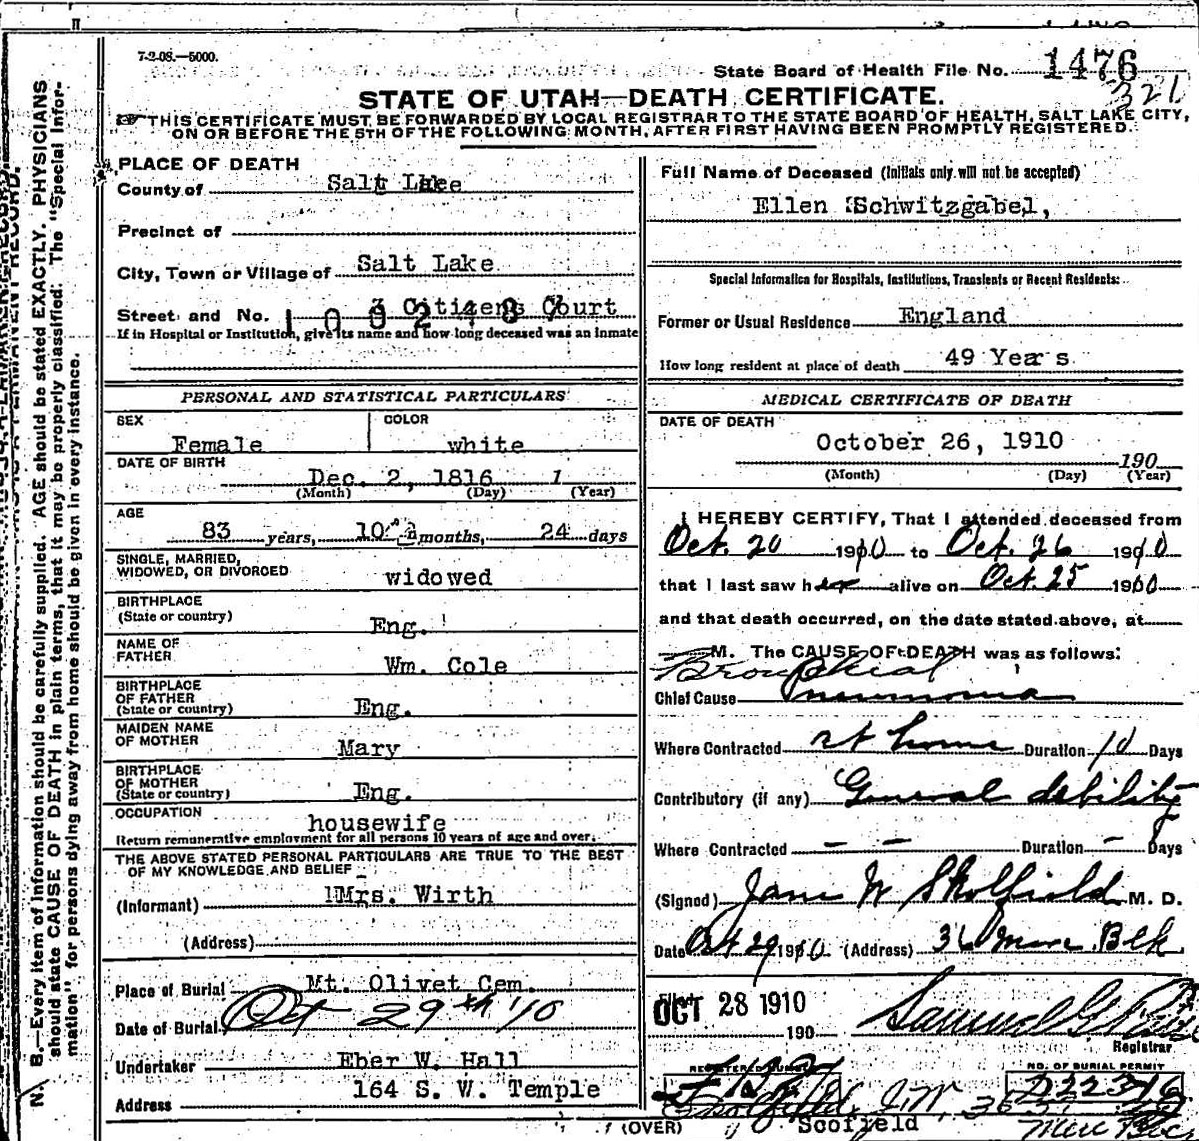 II
7-2-08.—5000.
State Board of Health File No. 1476
321
STATE OF UTAH—DEATH CERTIFICATE.
THIS CERTIFICATE MUST BE FORWARDED BY LOCAL REGISTRAR TO THE STATE BOARD OF HEALTH, SALT LAKE CITY,
ON OR BEFORE THE 5TH OF THE FOLLOWING MONTH, AFTER FIRST HAVING BEEN PROMPTLY REGISTERED.
N. B.—Every item of information should be carefully supplied. AGE should be stated EXACTLY. PHYSICIANS
should state CAUSE OF DEATH in plain terms, that it may be properly classified. The "Special Infor-
mation" for persons dying away from home should be given in every instance.
PLACE OF DEATH
County of Salt Lake
Precinct of
City, Town or Village of Salt Lake
Street and No. 3 Citizens Court
If in Hospital or Institution, give its name and how long deceased was an inmate
Full Name of Deceased (Initials only will not be accepted)
Ellen Schwitzgabel,
Special Information for Hospitals, Institutions, Transients or Recent Residents:
Former or Usual Residence England
How long resident at place of death 49 Years
PERSONAL AND STATISTICAL PARTICULARS
SEX Female COLOR white
DATE OF BIRTH
Dec. 2, 1816 1
(Month) (Day) (Year)
AGE
83 years, 10 months, 24 days
SINGLE, MARRIED,
WIDOWED, OR DIVORCED widowed
BIRTHPLACE
(State or country) Eng.
NAME OF
FATHER Wm. Cole
BIRTHPLACE
OF FATHER
(State or country) Eng.
MAIDEN NAME
OF MOTHER Mary
BIRTHPLACE
OF MOTHER
(State or country) Eng.
OCCUPATION
housewife
Return remunerative employment for all persons 10 years of age and over.
THE ABOVE STATED PERSONAL PARTICULARS ARE TRUE TO THE BEST
OF MY KNOWLEDGE AND BELIEF
(Informant) Mrs. Wirth
(Address)
Place of Burial Mt. Olivet Cem.
Date of Burial Oct 29th '10
Undertaker Eber W. Hall
Address 164 S. W. Temple
MEDICAL CERTIFICATE OF DEATH
DATE OF DEATH
October 26, 1910
190
(Month) (Day) (Year)
I HEREBY CERTIFY, That I attended deceased from
Oct. 20 1910 to Oct. 26 1910
that I last saw her alive on Oct. 25 1910
and that death occurred, on the date stated above, at
M. The CAUSE OF DEATH was as follows:
Bronchial
Chief Cause Pneumonia
Where Contracted at home Duration 10 Days
Contributory (if any) General debility
Where Contracted — — Duration — Days
(Signed) Jane W Skolfield M. D.
Date Oct 29 1910. (Address) 36 Blk
OCT 28 1910
190
Samuel G.
Registrar
NO. OF BURIAL PERMIT
Skolfield, J.W.
(OVER)
Scofield